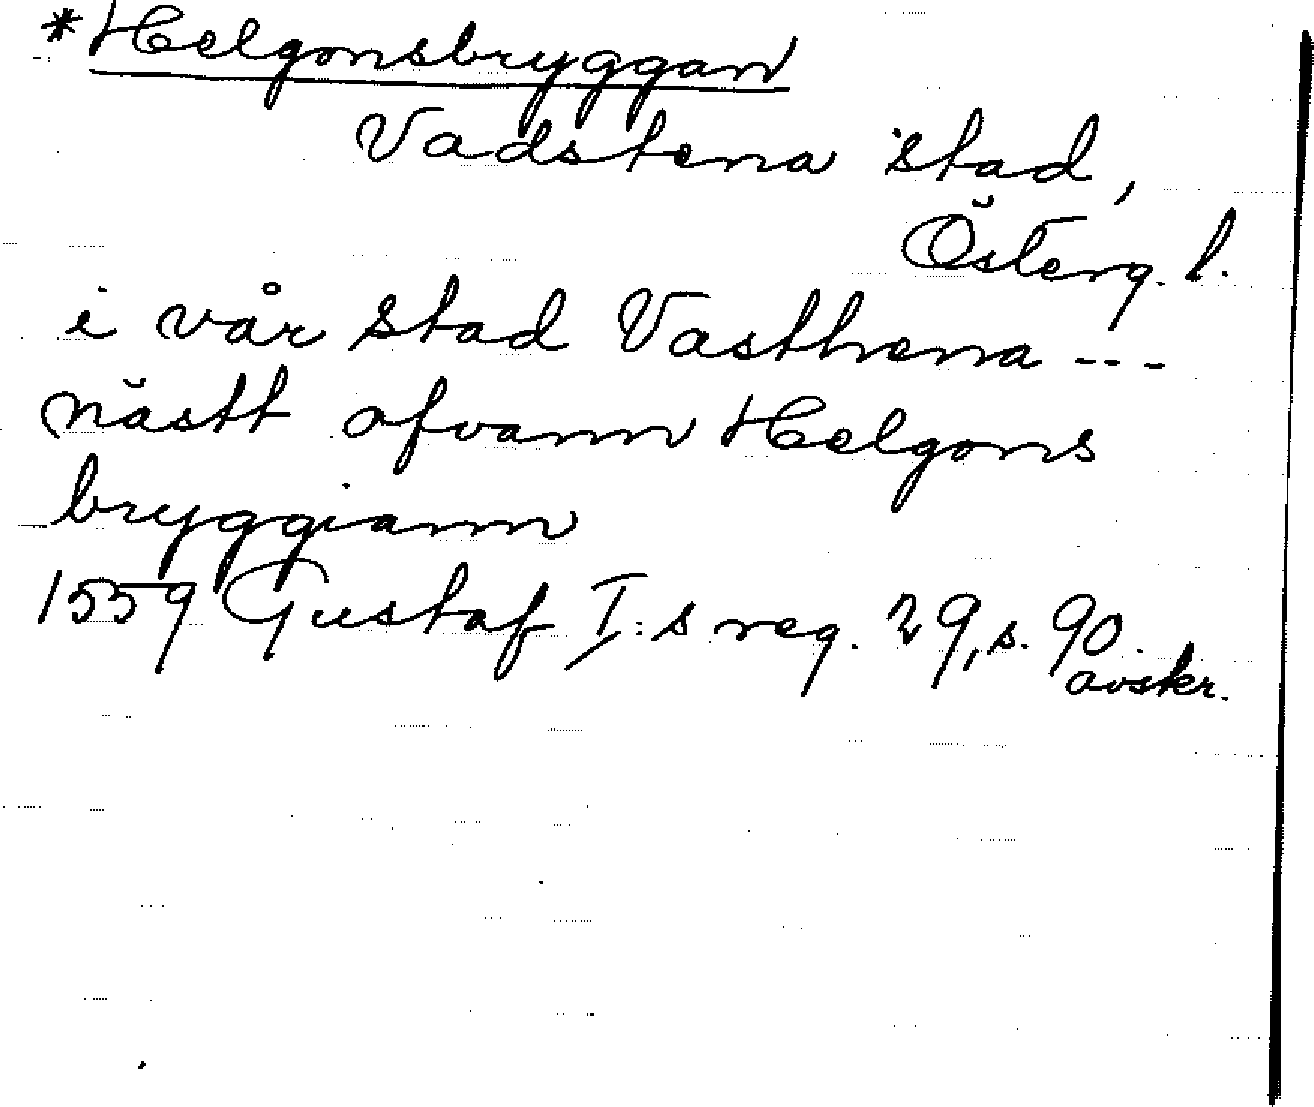 *Helgonsbryggan
Vadstena stad,
Österg. l.
i vår stad Vasthena ---
nästt ofvann Helgons
bryggiann
1559 Gustaf I:s reg. 29, s. 90.
avskr.